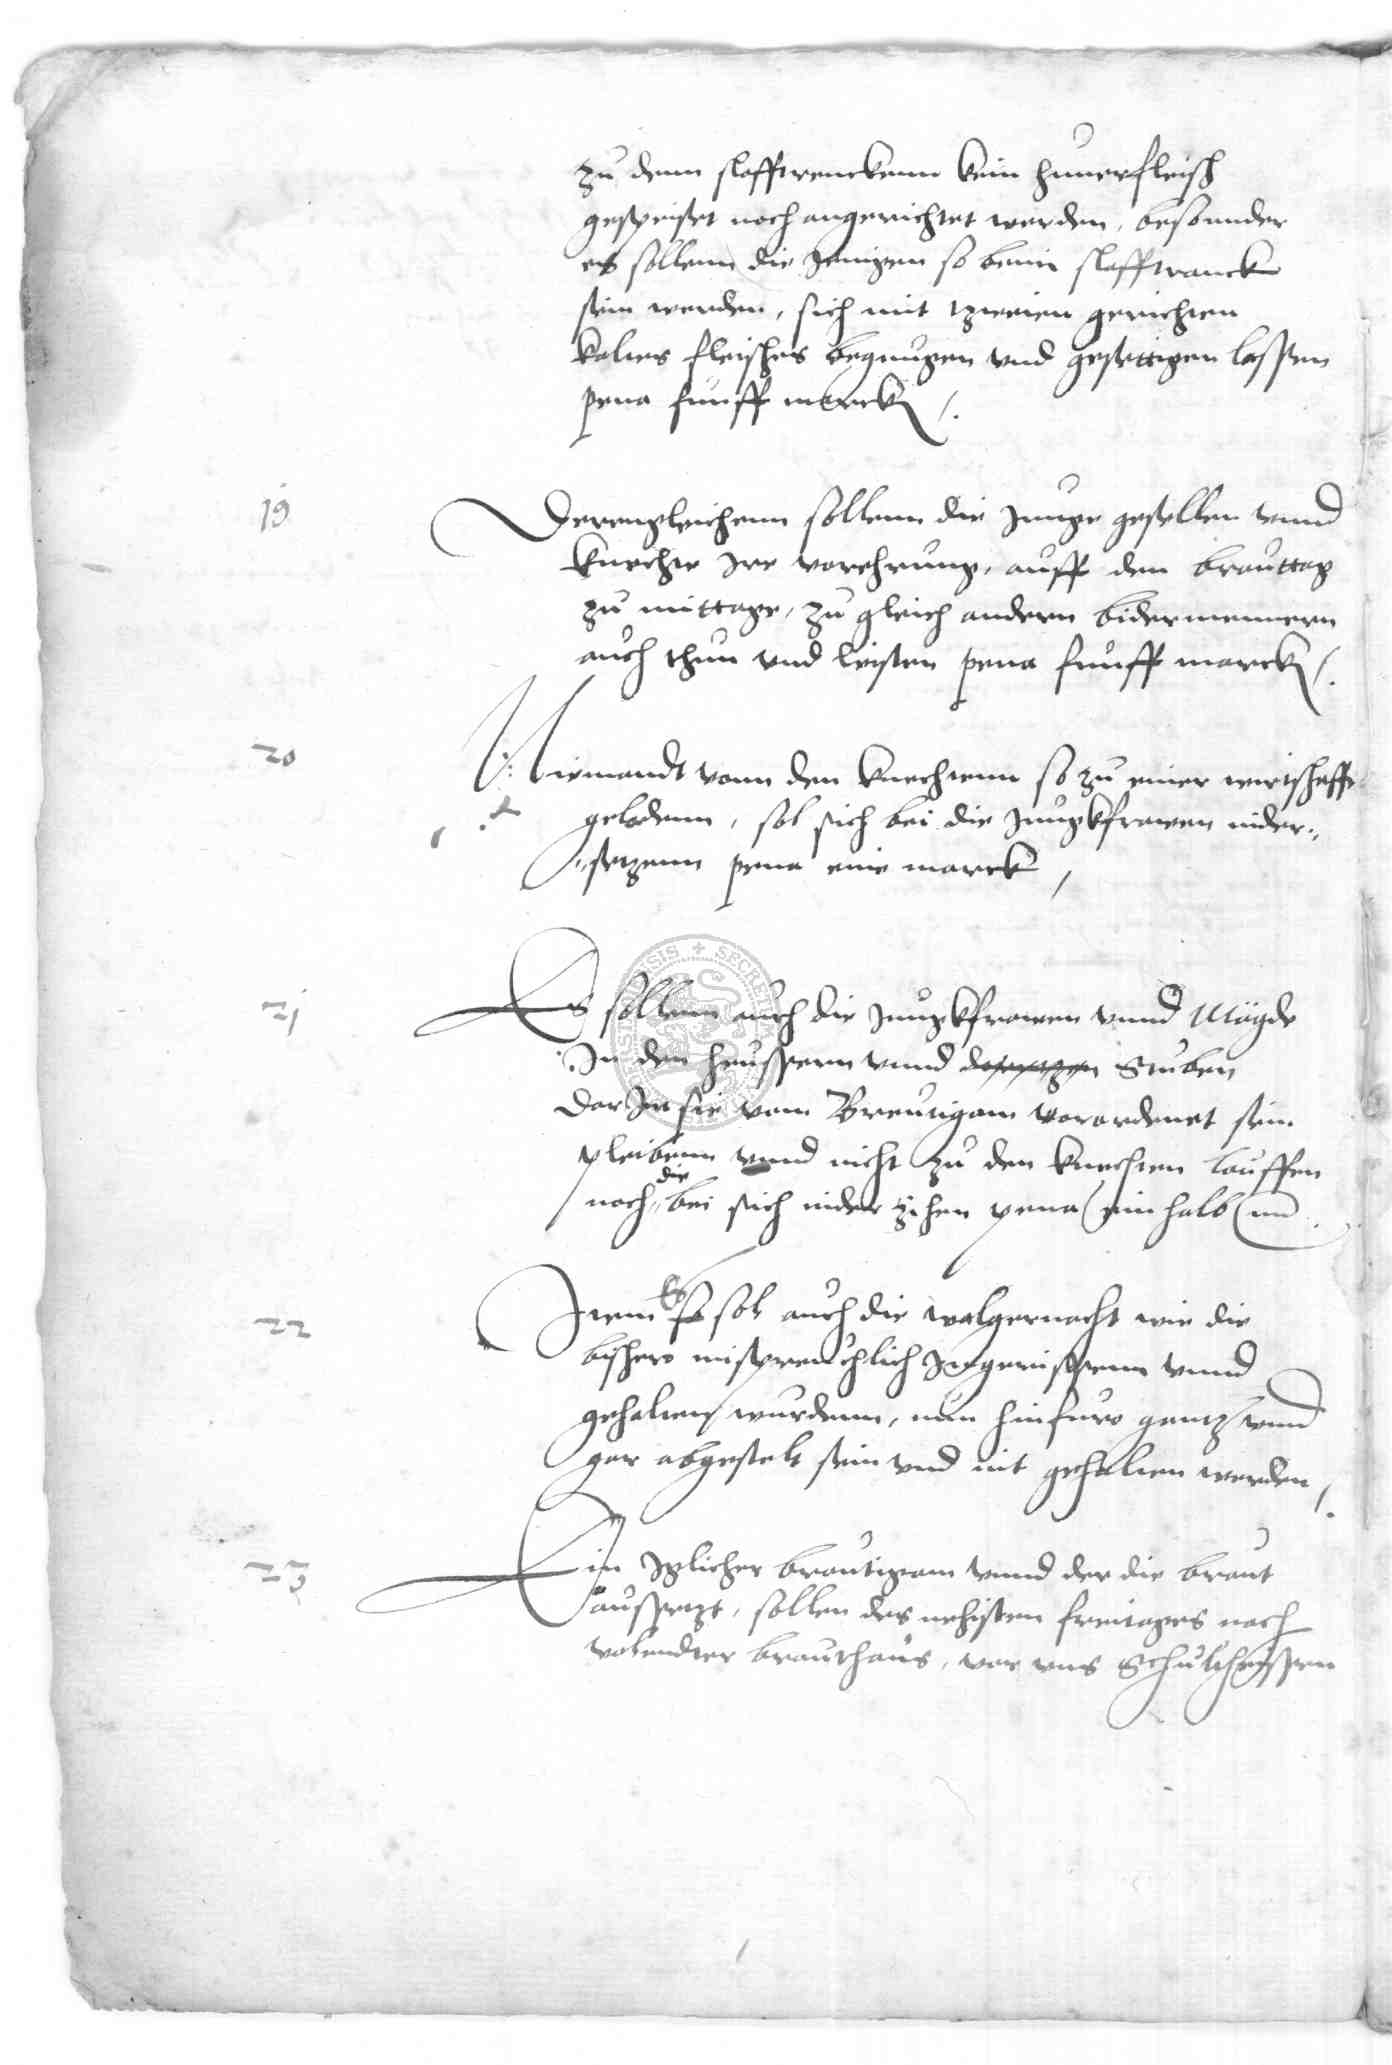 zu denn slafftrenckenn kein hunerfleisch
gespeiset noch angerichtet werden, besonnder
es sollenn die Jenigen so beim slafftranck
sein werden, sich mit zweien gerichten
kaltes fleisches begnugen vnd gesettigen lassen
pena funff marck /.
19 Derengleichenn sollenn die Junge gesellen vnnd
knechte Ire vorehrung, auff den brauttag
zu mittage, zu gleich andern bidermennern
auch thun vnd leisten pena funff marck /.
20 Niemandt vonn den knechtenn so zu einer wirtschafft
geladenn, sol sich bei die Jungkfrawen nider„
„setzenn pena eine marck /
21 Es sollenn auch die Jungkfrawen vnnd Mägde
In den heussern vnnd Stuben
dar In sie vom Breutigam vorordenet sein
pleibenn vnnd nicht zu den knechten lauffen
die
noch„ bei sich nider zihen pena ein halb m
22 Item Es so sol auch die walgernacht wie die
bishero mispreuchlich Ingerissenn vnnd
gehalten wurdenn, nun hinfuro gantz vnnd
gar abgestelt sein vnd nit gehalten werden /.
23 Ein Iglicher brautigam vnnd der die braut
aussetzt, sollen des nehisten freitages nach
volendter brauthaus, vor vns Schultheissen
SECRETUM